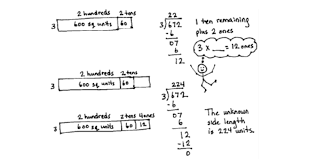 2 hundreds 2 tens
3 600 sq units 60
22
3 672
-6
07
6
12
1 ten remaining
plus 2 ones
3 x __ = 12 ones
2 hundreds 2 tens
3 600 sq units 60
2 hundreds 2 tens 4 ones
3 600 sq units 60 12
224
3 672
-6
07
6
12
-12
0
The unknown
side length
is 224 units.